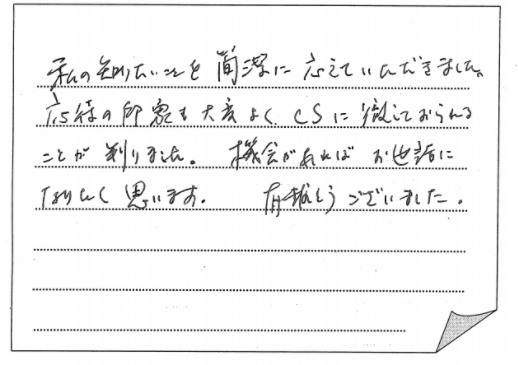 私の知りたいことを簡潔に応えていただきました。
応待の印象も大変よく、CSに徹しておられる
ことが判りました。 機会があればお世話に
なりたく思います。 有難とうございました。